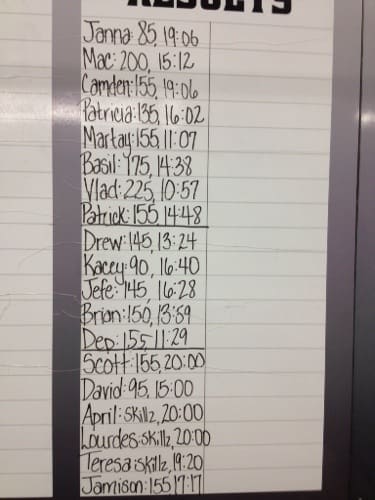 RESULTS
Janna: 85, 19:06
Mac: 200, 15:12
Camden: 155, 19:06
Patricia: 135, 16:02
Martay: 155, 11:07
Basil: 175, 14:38
Vlad: 225, 10:57
Patrick: 155, 14:48
Drew: 145, 13:24
Kacey: 90, 16:40
Jefe: 145, 16:28
Brian: 150, 13:59
Dep: 155, 11:29
Scott: 155, 20:00
David: 95, 15:00
April: Skillz, 20:00
Lourdes: skillz, 20:00
Teresa: skillz, 19:20
Jamison: 155 17:17